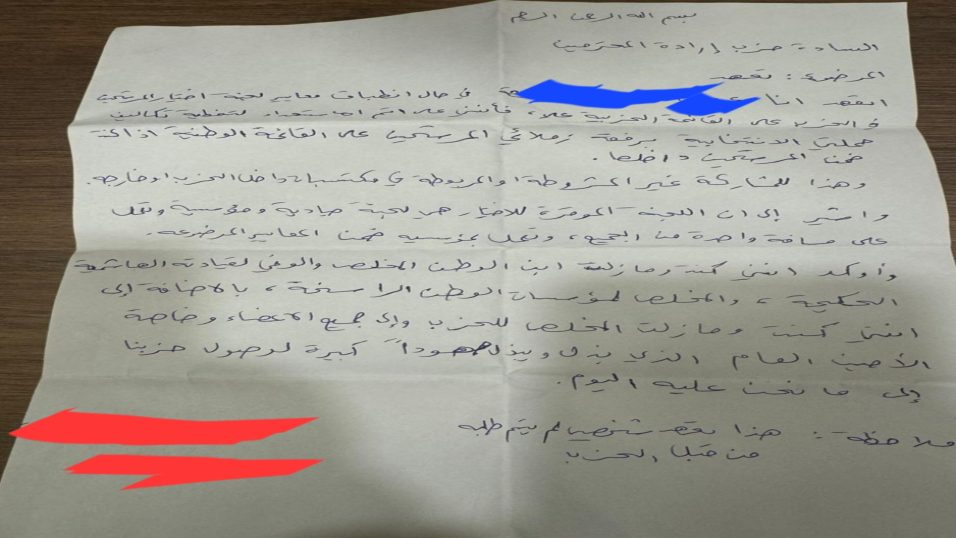 بسم الله الرحمن الرحيم
السادة حزب إرادة المحترمين
الموضوع: تعهد
اتعهد انا في حال انطباق معايير لجنة اختيار المرشحين
في الحزب على القائمة الحزبية علي، فأنني على اتم الاستعداد لتغطية تكاليف
حملتي الانتخابية برفقة زملائي المرشحين على القائمة الوطنية اذا كنت
ضمن المرشحين داخلها.
وهذا للمشاركة غير المشروطة او المربوطة في مكتسبات داخل الحزب او خارجه.
واشير إلى ان اللجنة الموقرة للاختيار هي لجنة حيادية ومؤسسية وتقف
على مسافة واحدة من الجميع، وتعمل بمؤسسية ضمن المعايير الموضوعه.
وأوكد انني كنت وما زلت ابن الوطن المخلص والوفي لقيادته الهاشمية
الحكيمة، والمخلص لمؤسسات الوطن الراسخة، بالاضافة إلى
انني كنت وما زلت المخلص للحزب وإلى جميع الاعضاء وخاصة
الأمين العام الذي بذل ويبذل جهوداً كبيرة لوصول حزبنا
إلى ما نحن عليه اليوم.
ملاحظة: هذا تعهد شخصي لم يتم طلبه
من قبل الحزب